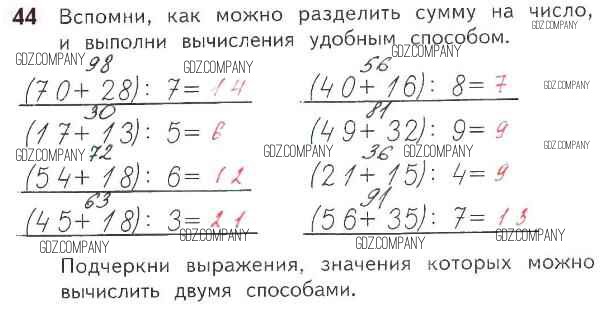 44 Вспомни, как можно разделить сумму на число,
и выполни вычисления удобным способом.
GDZ.COMPANY GDZ.COMPANY GDZ.COMPANY
98 56
(70+28): 7=14 (40+16): 8=7
GDZ.COMPANY GDZ.COMPANY GDZ.COMPANY GDZ.COMPANY
30 81
(17+13): 5=6 (49+32): 9=9
GDZ.COMPANY GDZ.COMPANY GDZ.COMPANY GDZ.COMPANY
72 36
(54+18): 6=12 (21+15): 4=9
GDZ.COMPANY GDZ.COMPANY GDZ.COMPANY GDZ.COMPANY
63 91
(45+18): 3=21 (56+35): 7=13
GDZ.COMPANY GDZ.COMPANY GDZ.COMPANY
Подчеркни выражения, значения которых можно
вычислить двумя способами.